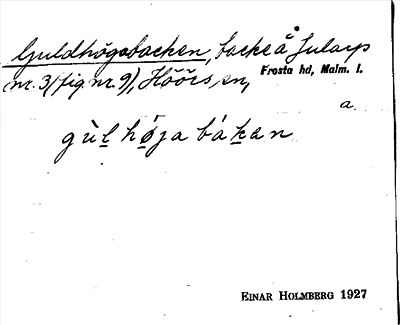 Guldhögabacken, backe å Jularp
nr. 3 (fig nr. 9), Höörs sn,
Frosta hd, Malm. l.
a.
gùl hǿja bákan
EINAR HOLMBERG 1927